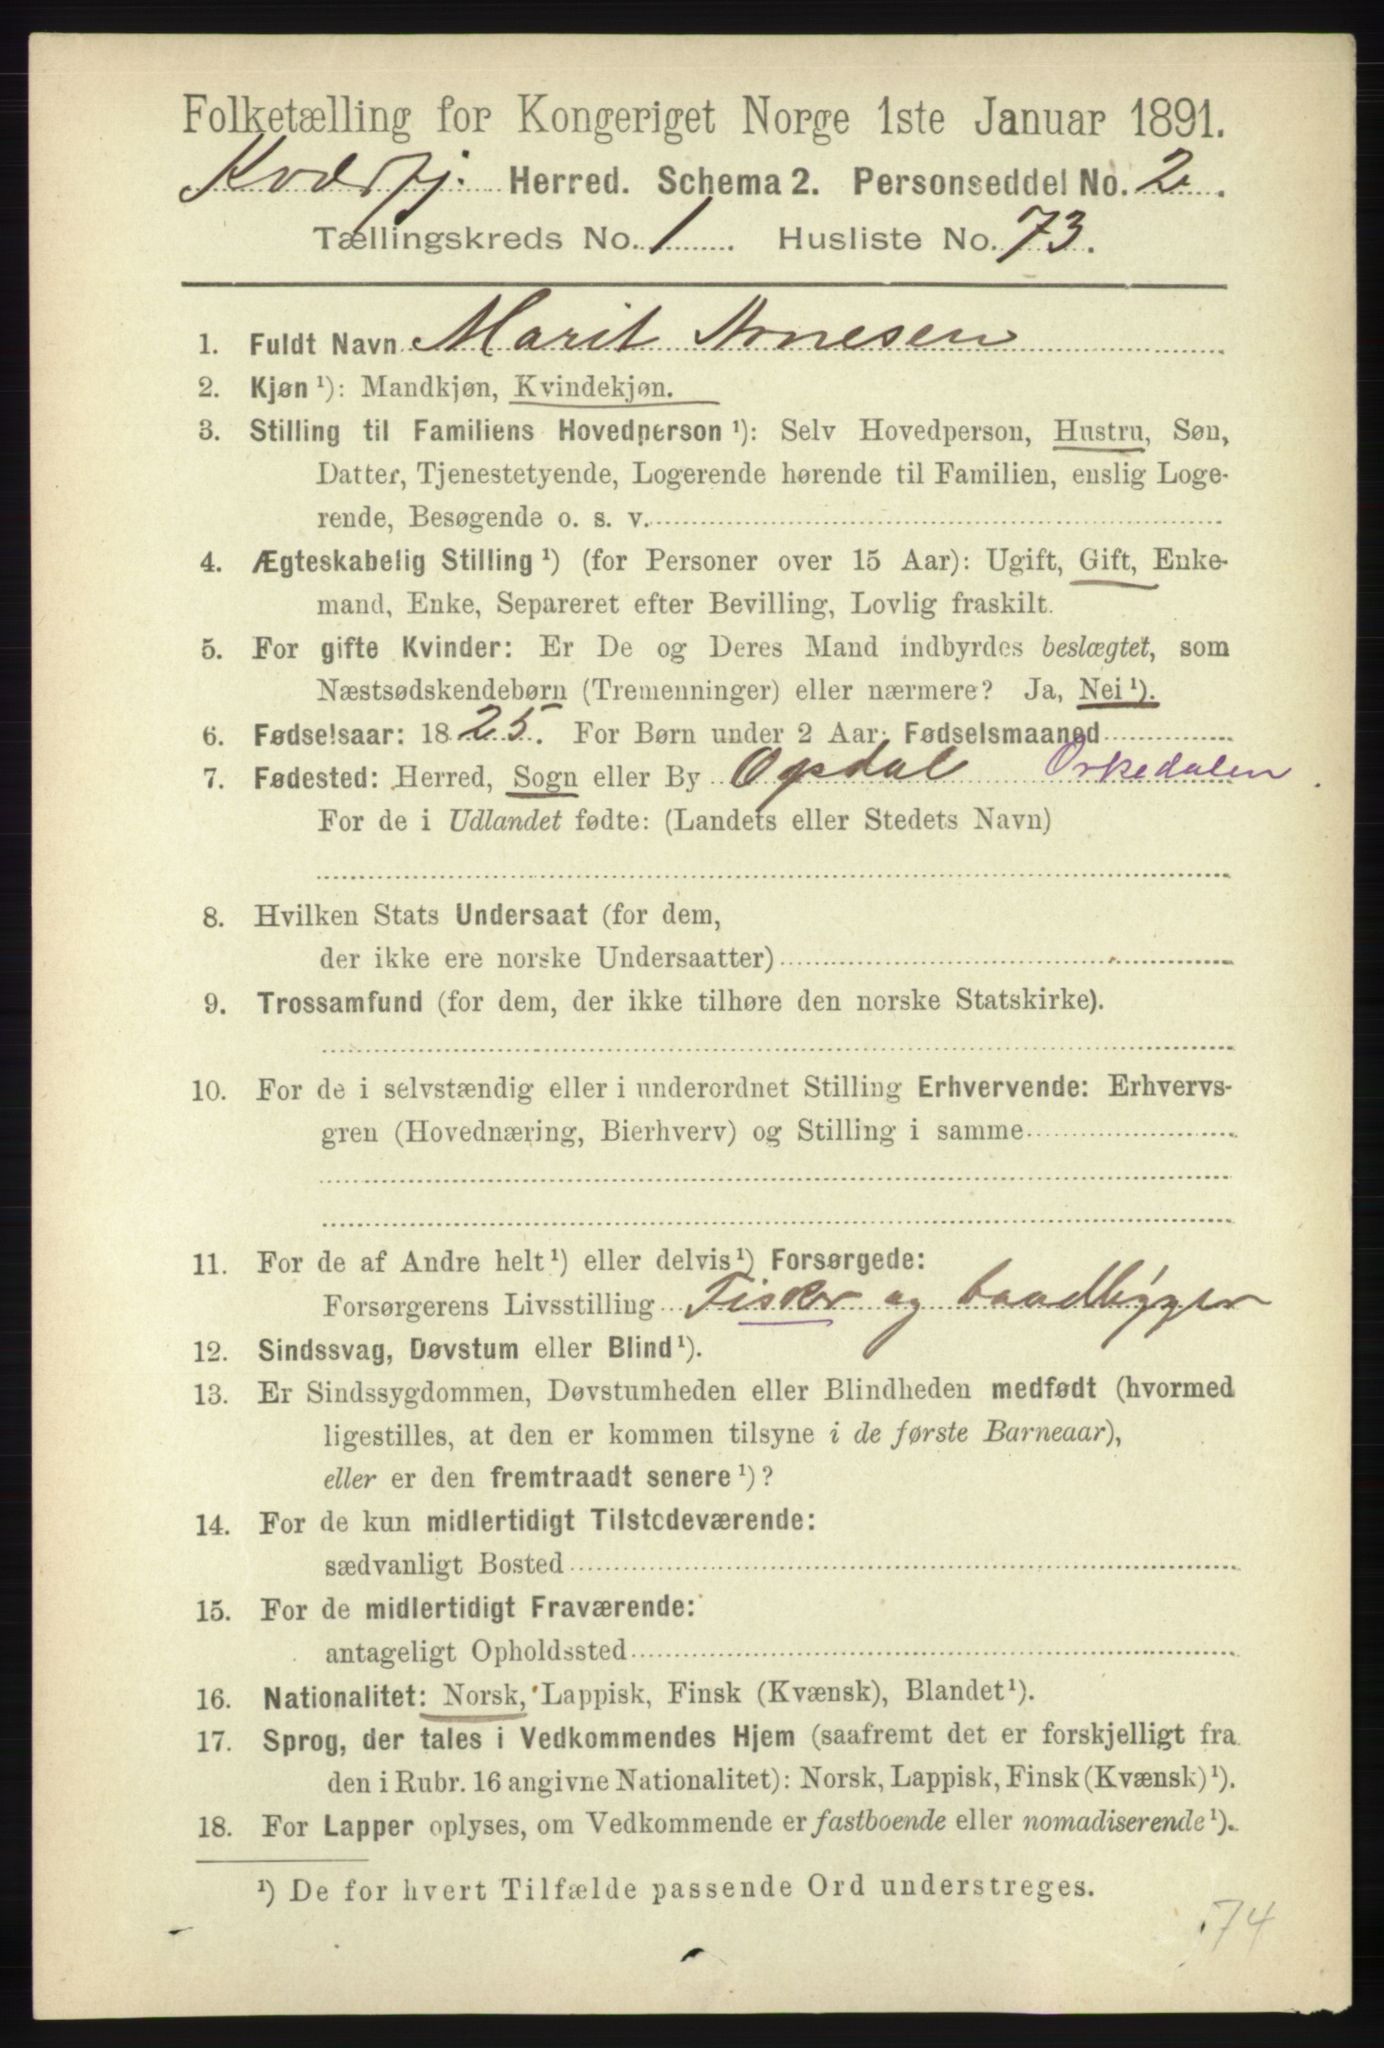 Folketælling for Kongeriget Norge 1ste Januar 1891.
Kvæfj. Herred. Schema 2. Personseddel No. 2.
Tællingskreds No. 1 Husliste No. 73.
1. Fuldt Navn Marit Arnesen
2. Kjøn ¹): Mandkjøn, Kvindekjøn.
3. Stilling til Familiens Hovedperson ¹): Selv Hovedperson, Hustru, Søn,
Datter, Tjenestetyende, Logerende hørende til Familien, enslig Loge-
rende, Besøgende o. s. v.
4. Ægteskabelig Stilling ¹) (for Personer over 15 Aar): Ugift, Gift, Enke-
mand, Enke, Separeret efter Bevilling, Lovlig fraskilt.
5. For gifte Kvinder: Er De og Deres Mand indbyrdes beslægtet, som
Næstsødskendebørn (Tremenninger) eller nærmere? Ja, Nei ¹).
6. Fødselsaar: 1825. For Børn under 2 Aar: Fødselsmaaned
7. Fødested: Herred, Sogn eller By Opdal Orkedalen
For de i Udlandet fødte: (Landets eller Stedets Navn)
8. Hvilken Stats Undersaat (for dem,
der ikke ere norske Undersaatter)
9. Trossamfund (for dem, der ikke tilhøre den norske Statskirke).
10. For de i selvstændig eller i underordnet Stilling Erhvervende: Erhvervs-
gren (Hovednæring, Bierhverv) og Stilling i samme
11. For de af Andre helt ¹) eller delvis ¹) Forsørgede:
Forsørgerens Livsstilling Fisker og baadbygger
12. Sindssvag, Døvstum eller Blind ¹).
13. Er Sindssygdommen, Døvstumheden eller Blindheden medfødt (hvormed
ligestilles, at den er kommen tilsyne i de første Barneaar),
eller er den fremtraadt senere ¹)?
14. For de kun midlertidigt Tilstedeværende:
sædvanligt Bosted
15. For de midlertidigt Fraværende:
antageligt Opholdssted
16. Nationalitet: Norsk, Lappisk, Finsk (Kvænsk), Blandet ¹).
17. Sprog, der tales i Vedkommendes Hjem (saafremt det er forskjelligt fra
den i Rubr. 16 angivne Nationalitet): Norsk, Lappisk, Finsk (Kvænsk) ¹).
18. For Lapper oplyses, om Vedkommende er fastboende eller nomadiserende ¹).
¹) De for hvert Tilfælde passende Ord understreges.
74